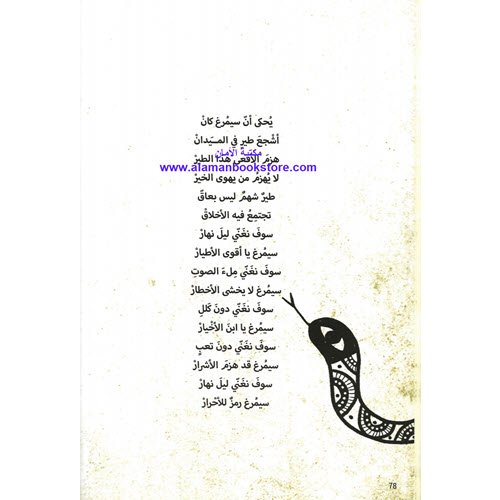 يُحكى أنّ سيمُرغ كانْ
أشجعَ طيرٍ في المـيّدانْ
مكتبة الأمان
هزمَ الأفعى هذا الطيرْ
www.alamanbookstore.com
لا يُهزمُ من يهوى الخيرْ
طيرٌ شهمٌ ليس بعاقّ
تجتمِعُ فيه الأخلاقْ
سوفَ نغَنّي ليلَ نهارْ
سيمُرغ يا أقوى الأطيارْ
سوفَ نغَنّي مِلءَ الصوتِ
سيمُرغ لا يخشى الأخطارْ
سوفَ نغَنّي دونَ كَللِ
سيمُرغ يا ابنَ الأخْيارْ
سوفَ نغَنّي دونَ تعبٍ
سيمُرغ قد هزمَ الأشرارْ
سوفَ نغَنّي ليلَ نهارْ
سيمُرغ رمزٌ للأحْرارْ
78